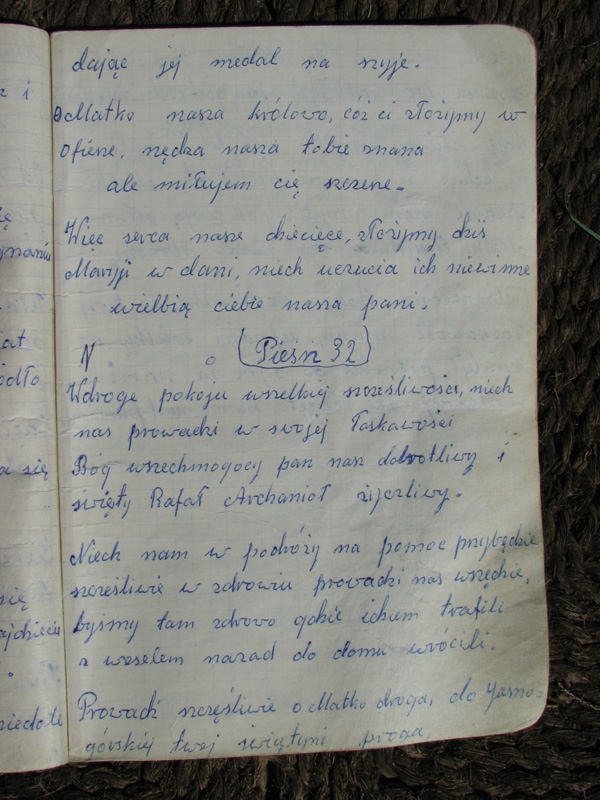 dając jej medal na szyje.
O Matko nasza królowo, cóż ci złożymy w
ofierze, nędza nasza tobie znana
ale miłujem cię szczerze.
Więc serca nasze dziecięce, złożymy dziś
Maryji w dani, niech uczucia ich niewinne
wielbią ciebie nasza pani.
N o (Pieśń 32)
Wdroge pokoju wszelkiej szcześliwości, niech
nas prowadzi w swojej Łaskawości
Bóg wszechmogocy pan nasz dobrotliwy i
święty Rafał Archanioł rzyczliwy.
Niech nam w podróży na pomoc przybędzie
szcześliwie w zdrowiu prowadzi nas wszędzie,
byśmy tam zdrowo gdzie idziem trafili
z weselem nazad do domu wrócili.
Prowadź szczęśliwie o Matko droga, do Jasno=
górskiej twej świątyni proga
z i
ię
at
ódło
a się
się
ajdziecie
niedole